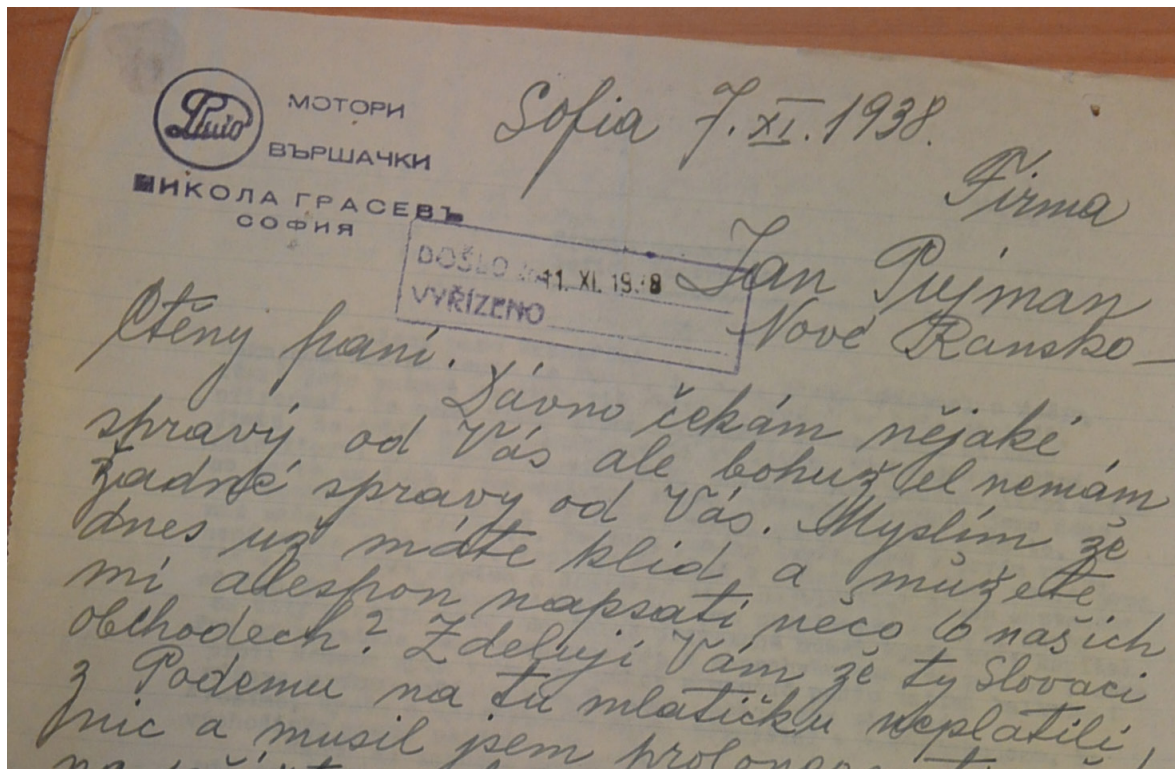 МОТОРИ
ВЪРШАЧКИ
НИКОЛА ГРАСЕВЪ
СОФИЯ
Sofia 7. XI. 1938.
Firma
Jan Pujman
Nové Ransko
DOŠLO 11. XI. 19 8
VYŘÍZENO
Ctěný paní.
Dávno čekám nějaké
spravý od Vás ale bohužel nemám
žadné spravy od Vás. Myslím že
dnes už máte klid a můžete
mi alespon napsati něco o našich
obchodech? Zdeluji Vám že ty Slovaci
z Podemu na tu mlatičku neplatili
nic a musil jsem